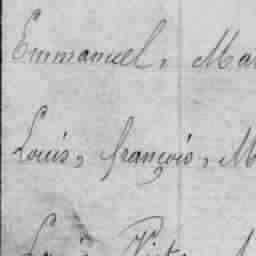 Emmanuel, Ma
Louis, françois, M